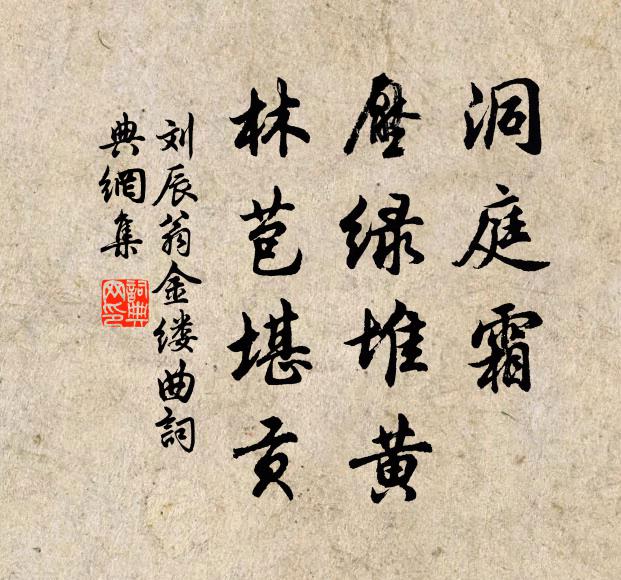 洞庭霜
壓绿堆黄
林苞堪贡
刘辰翁金缕曲詞
典網集
詞典
网印